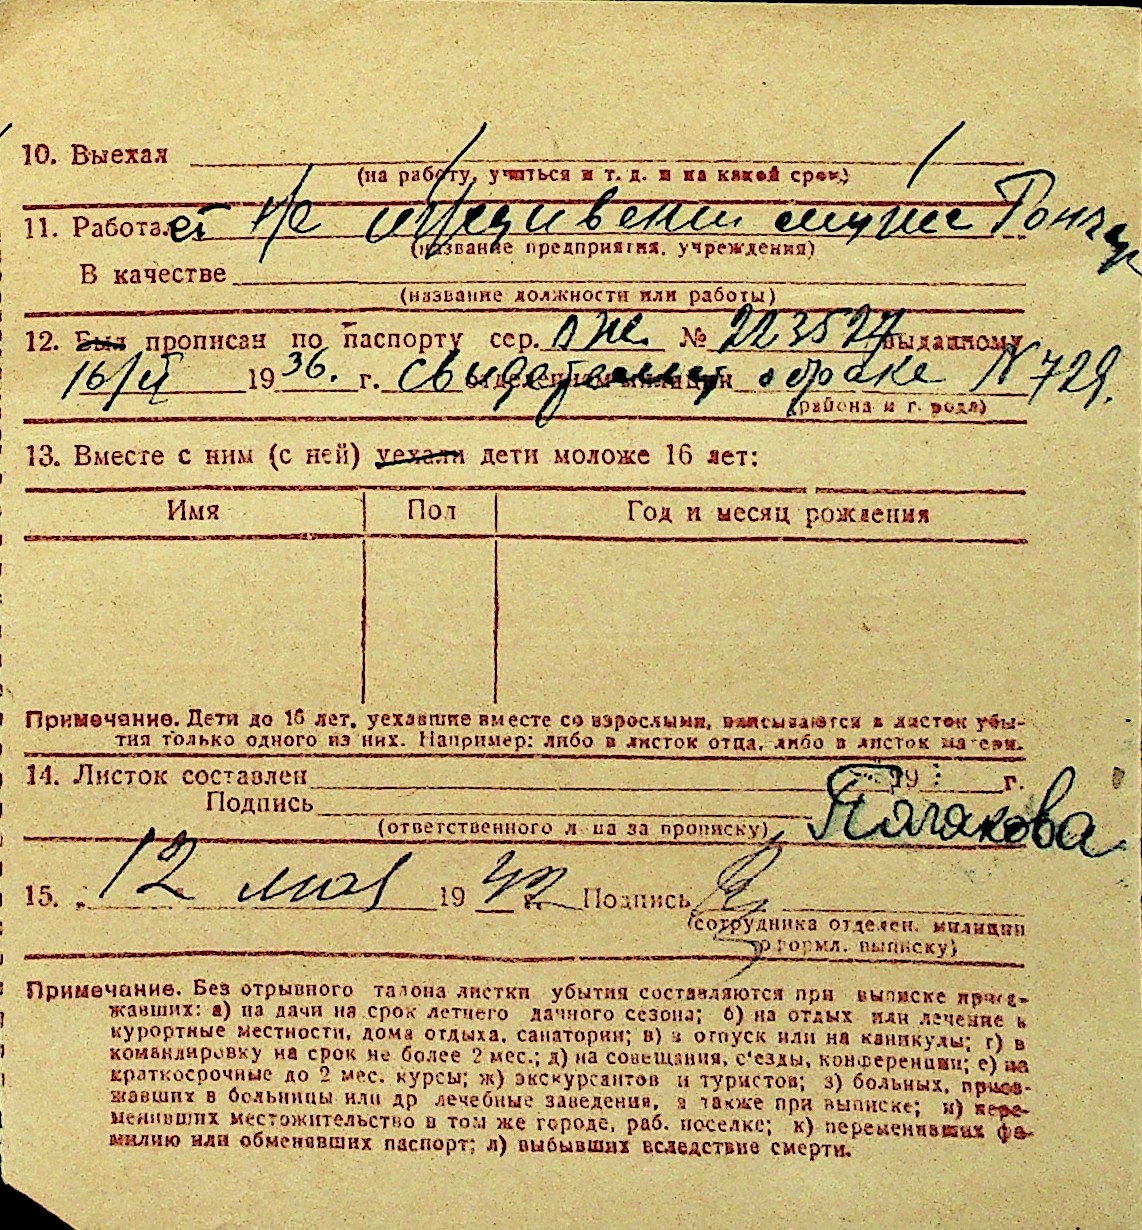 10. Выехал
(на работу, учиться и т. д. и на какой срок)
11. Работает н/р иждивении мужа
(название предприятия, учреждения)
В качестве
(название должности или работы)
12. Был прописан по паспорту сер. № 223527 выданному
16/II 1936. г. свидетельству отделением милиции о браке N 729.
(района и г. рода)
13. Вместе с ним (с ней) уехали дети моложе 16 лет:
Имя Пол Год и месяц рождения
Примечание. Дети до 16 лет, уехавшие вместе со взрослыми, вписываются в листок убы-
тия только одного из них. Например: либо в листок отца, либо в листок матери.
14. Листок составлен 19 г.
Подпись
(ответственного лица за прописку)
15. „ 12 мая 1942 г. Подпись
(сотрудника отделен. милиции
оформл. выписку)
Примечание. Без отрывного талона листки убытия составляются при выписке приез-
жавших: а) на дачи на срок летнего дачного сезона; б) на отдых или лечение в
курортные местности, дома отдыха, санатории; в) в отпуск или на каникулы; г) в
командировку на срок не более 2 мес.; д) на совещания, с'езды, конференции; е) на
краткосрочные до 2 мес. курсы; ж) экскурсантов и туристов; з) больных, приез-
жавших в больницы или др лечебные заведения, а также при выписке; и) пере-
менивших местожительство в том же городе, раб. поселке; к) переменивших фа-
милию или обменявших паспорт; л) выбывших вследствие смерти.